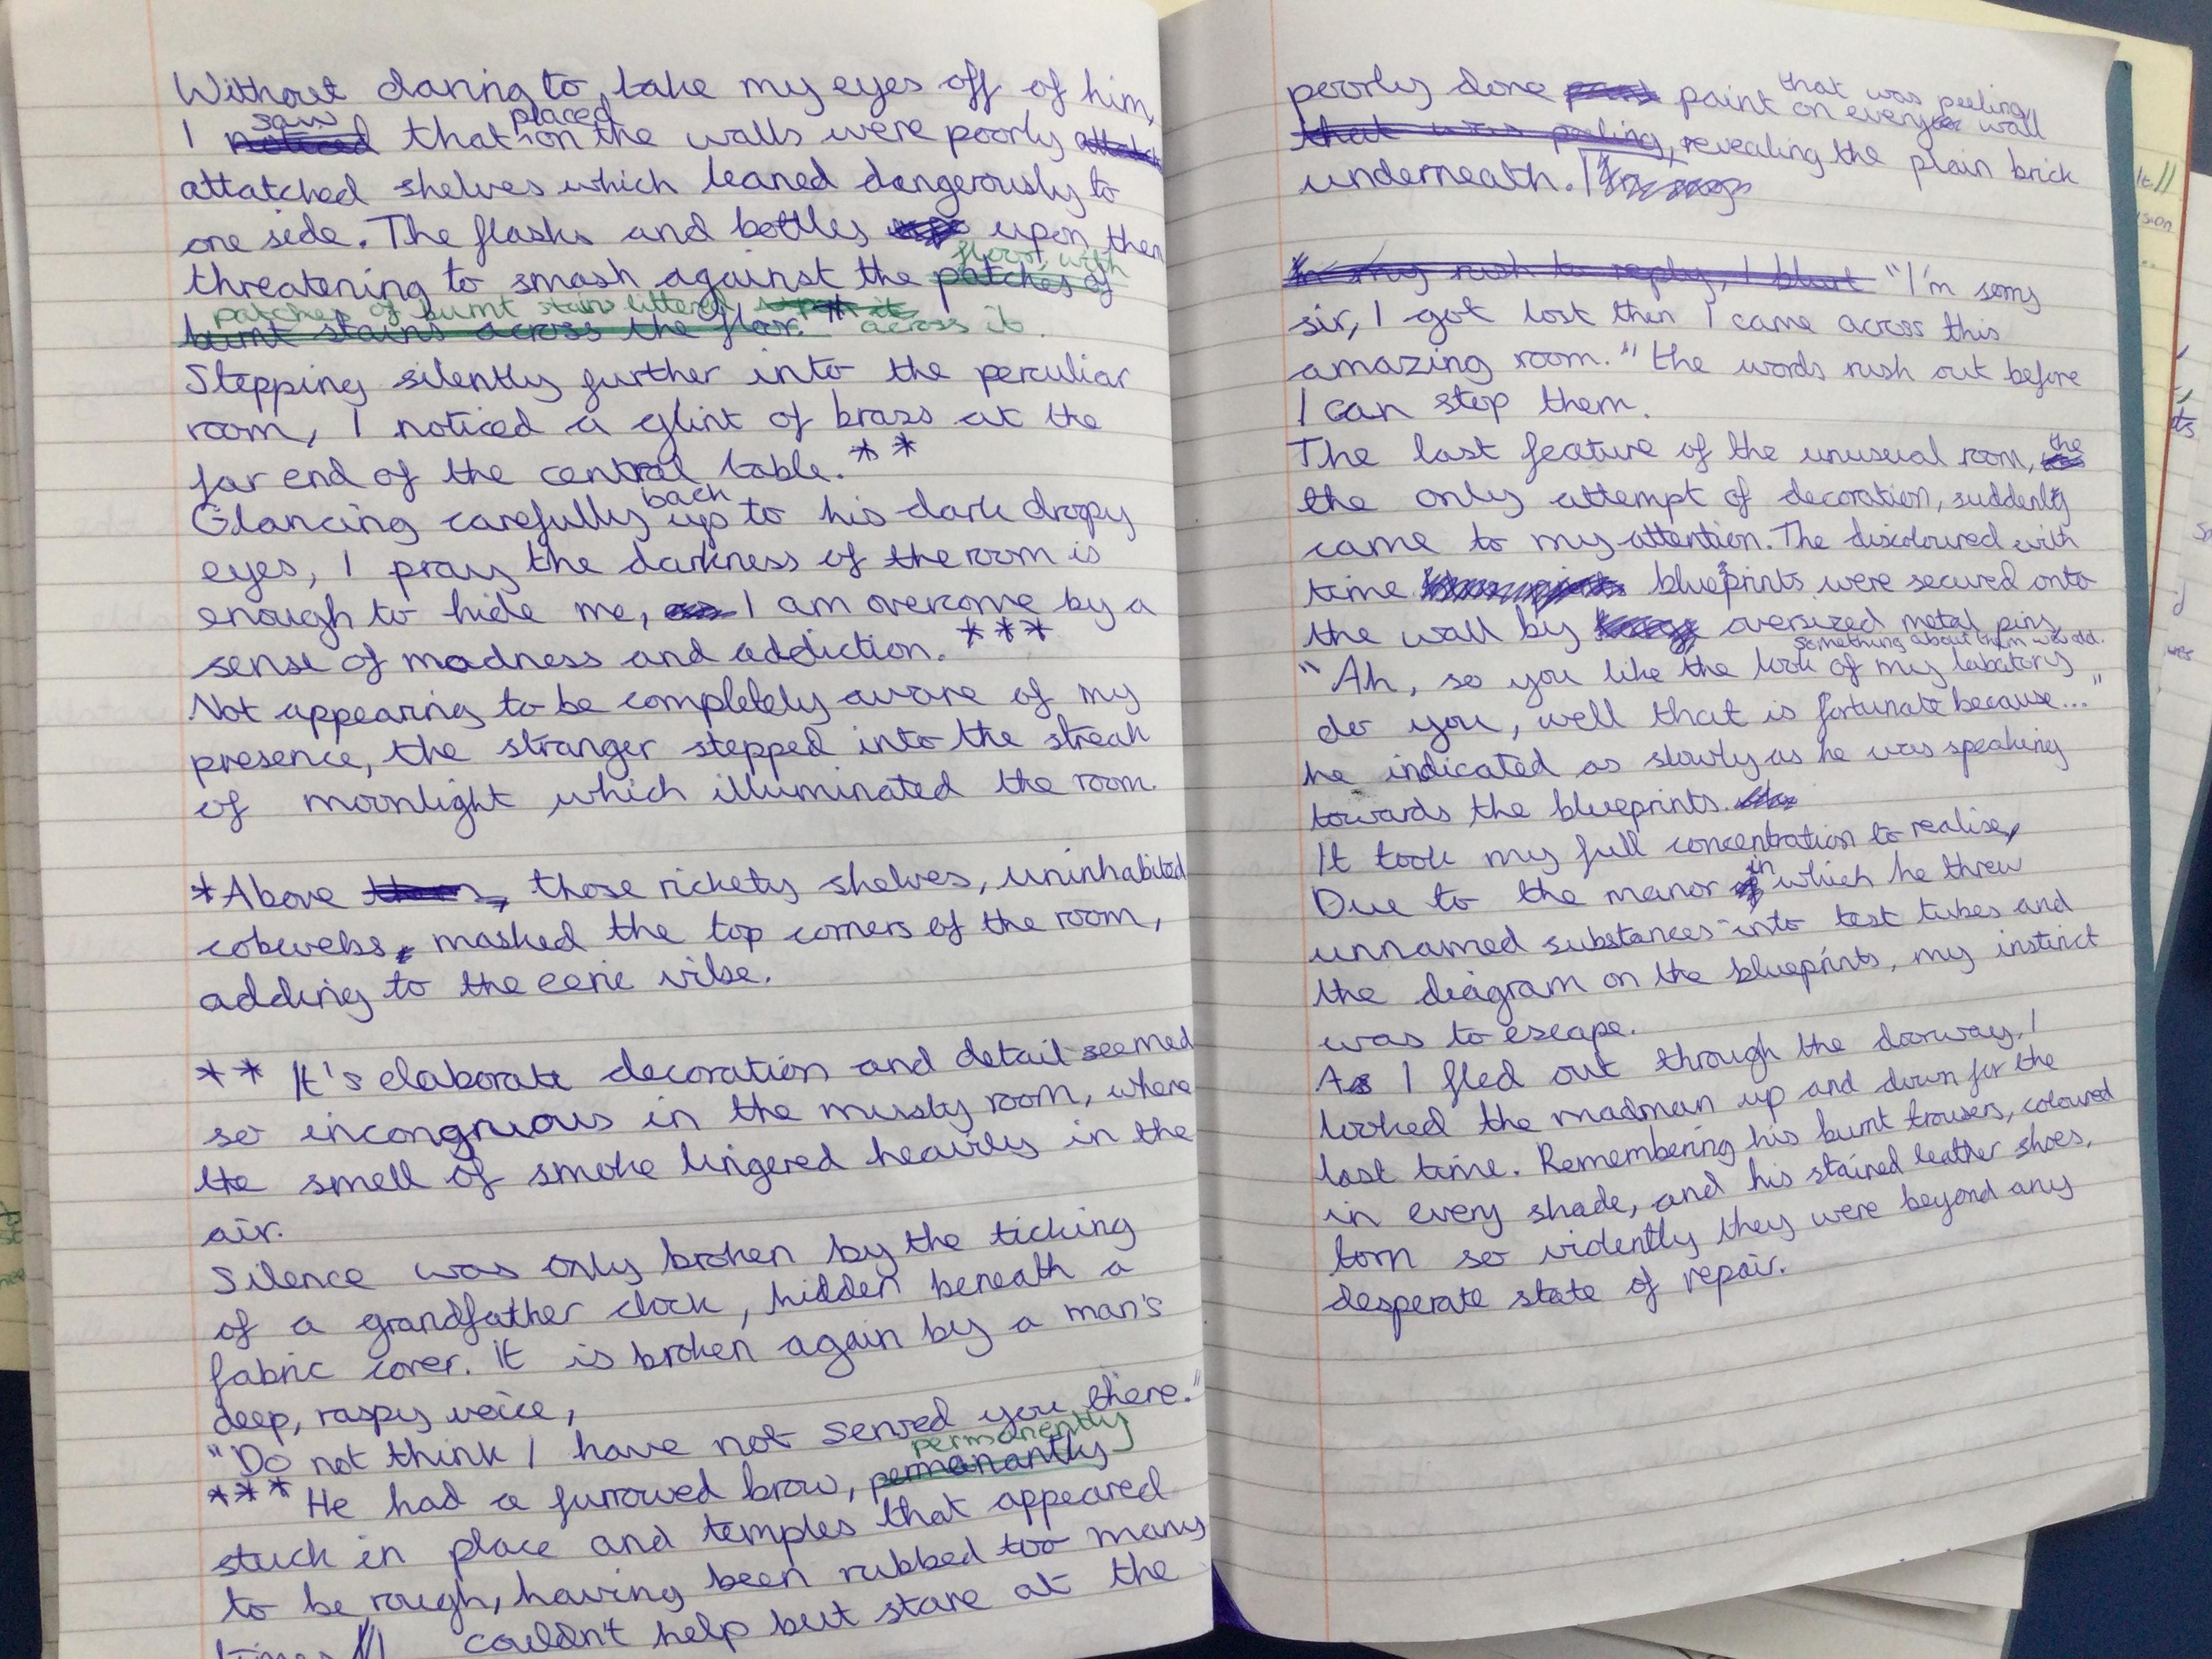 Without daring to take my eyes off of him,
saw placed
I noticed that on the walls were poorly
attatched shelves which leaned dangerously to
one side. The flasks and bottles upon them
floor, with
threatening to smash against the patches of
patches of burnt stains littered across it.
burnt stains across the floor. *
Stepping silently further into the perculiar
room, I noticed a glint of brass at the
far end of the central table. * *
back
Glancing carefully up to his dark droopy
eyes, I pray the darkness of the room is
enough to hide me, as I am overcome by a
sense of madness and addiction. * * *
Not appearing to be completely aware of my
presence, the stranger stepped into the streak
of moonlight which illuminated the room.
* Above them, those rickety shelves, uninhabited
cobwebs, masked the top corners of the room,
adding to the eerie vibe.
* * It's elaborate decoration and detail seemed
so incongruous in the musty room, where
the smell of smoke lingered heavily in the
air.
Silence was only broken by the ticking
of a grandfather clock, hidden beneath a
fabric cover. It is broken again by a man's
deep, raspy voice,
"Do not think I have not sensed you there."
permanently
* * * He had a furrowed brow, permanantly
stuck in place and temples that appeared
to be rough, having been rubbed too many
times. I couldn't help but stare at the
that was peeling
poorly done paint on every wall
that was peeling, revealing the plain brick
underneath.
In my rush to reply, I blurt "I'm sorry
sir, I got lost then I came across this
amazing room." the words rush out before
I can stop them.
The last feature of the unusual room, the
the only attempt of decoration, suddenly
came to my attention. The discoloured with
time blueprints were secured onto
the wall by oversized metal pins
something about them was odd.
"Ah, so you like the look of my labatory
do you, well that is fortunate because..."
he indicated as slowly as he was speaking
towards the blueprints.
It took my full concentration to realise,
in
Due to the manor of which he threw
unnamed substances into test tubes and
the diagram on the blueprints, my instinct
was to escape.
As I fled out through the doorway, I
looked the madman up and down for the
last time. Remembering his burnt trousers, coloured
in every shade, and his stained leather shoes,
torn so violently they were beyond any
desperate state of repair.